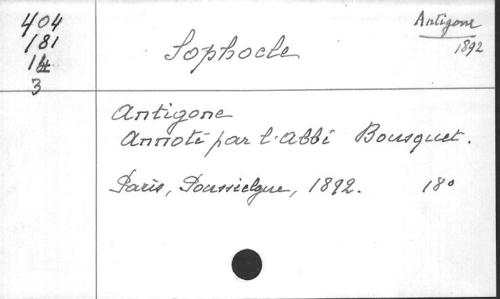 404
181
14
3
Antigone
1892
Sophocle
Antigone
Annoté par l'Abbé Bousquet.
Paris, Poussielgue, 1892. 18°